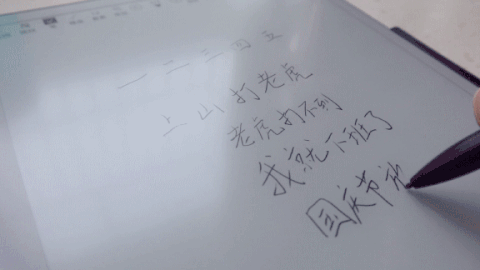 一二三四五
上山打老虎
老虎打不到
我就下班了
国庆节